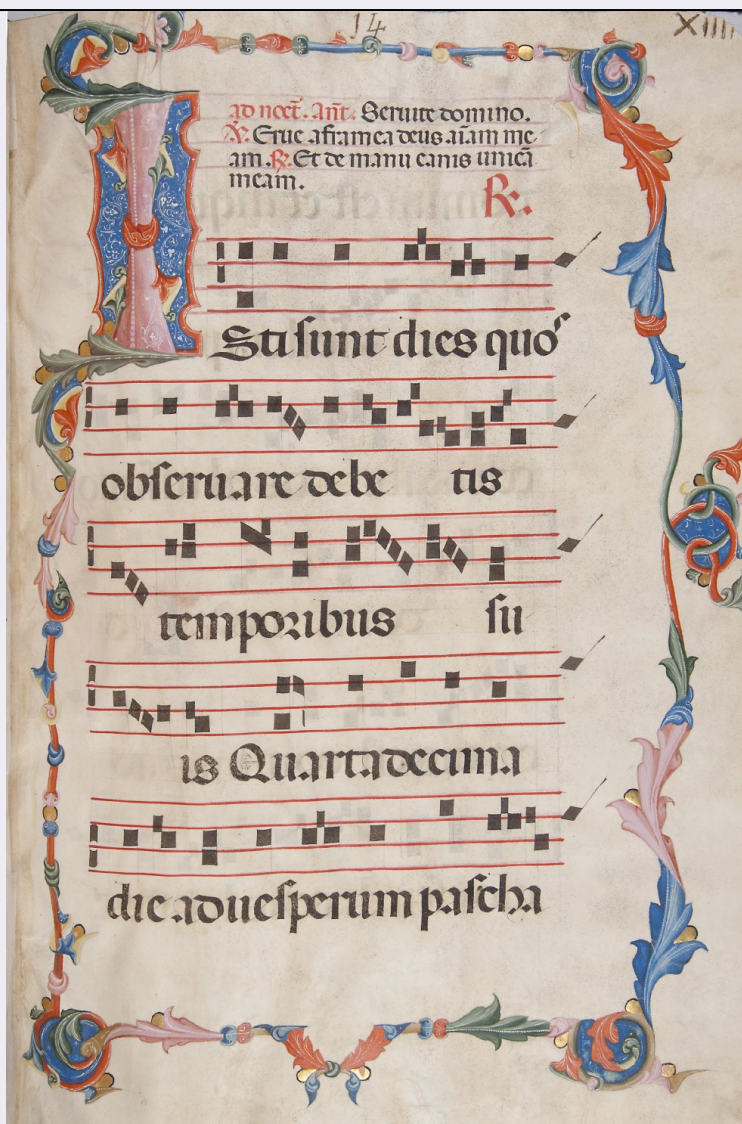 14
XIIII
ad noct̄. Ant̄. Seruite domino.
℣. Erue a framea deus aīam me
am. ℟. Et de manu canis unicā
meam.
℟.
Isti sunt dies quos
obseruare debe tis
temporibus su
is Quartadecima
die ad uesperum pascha